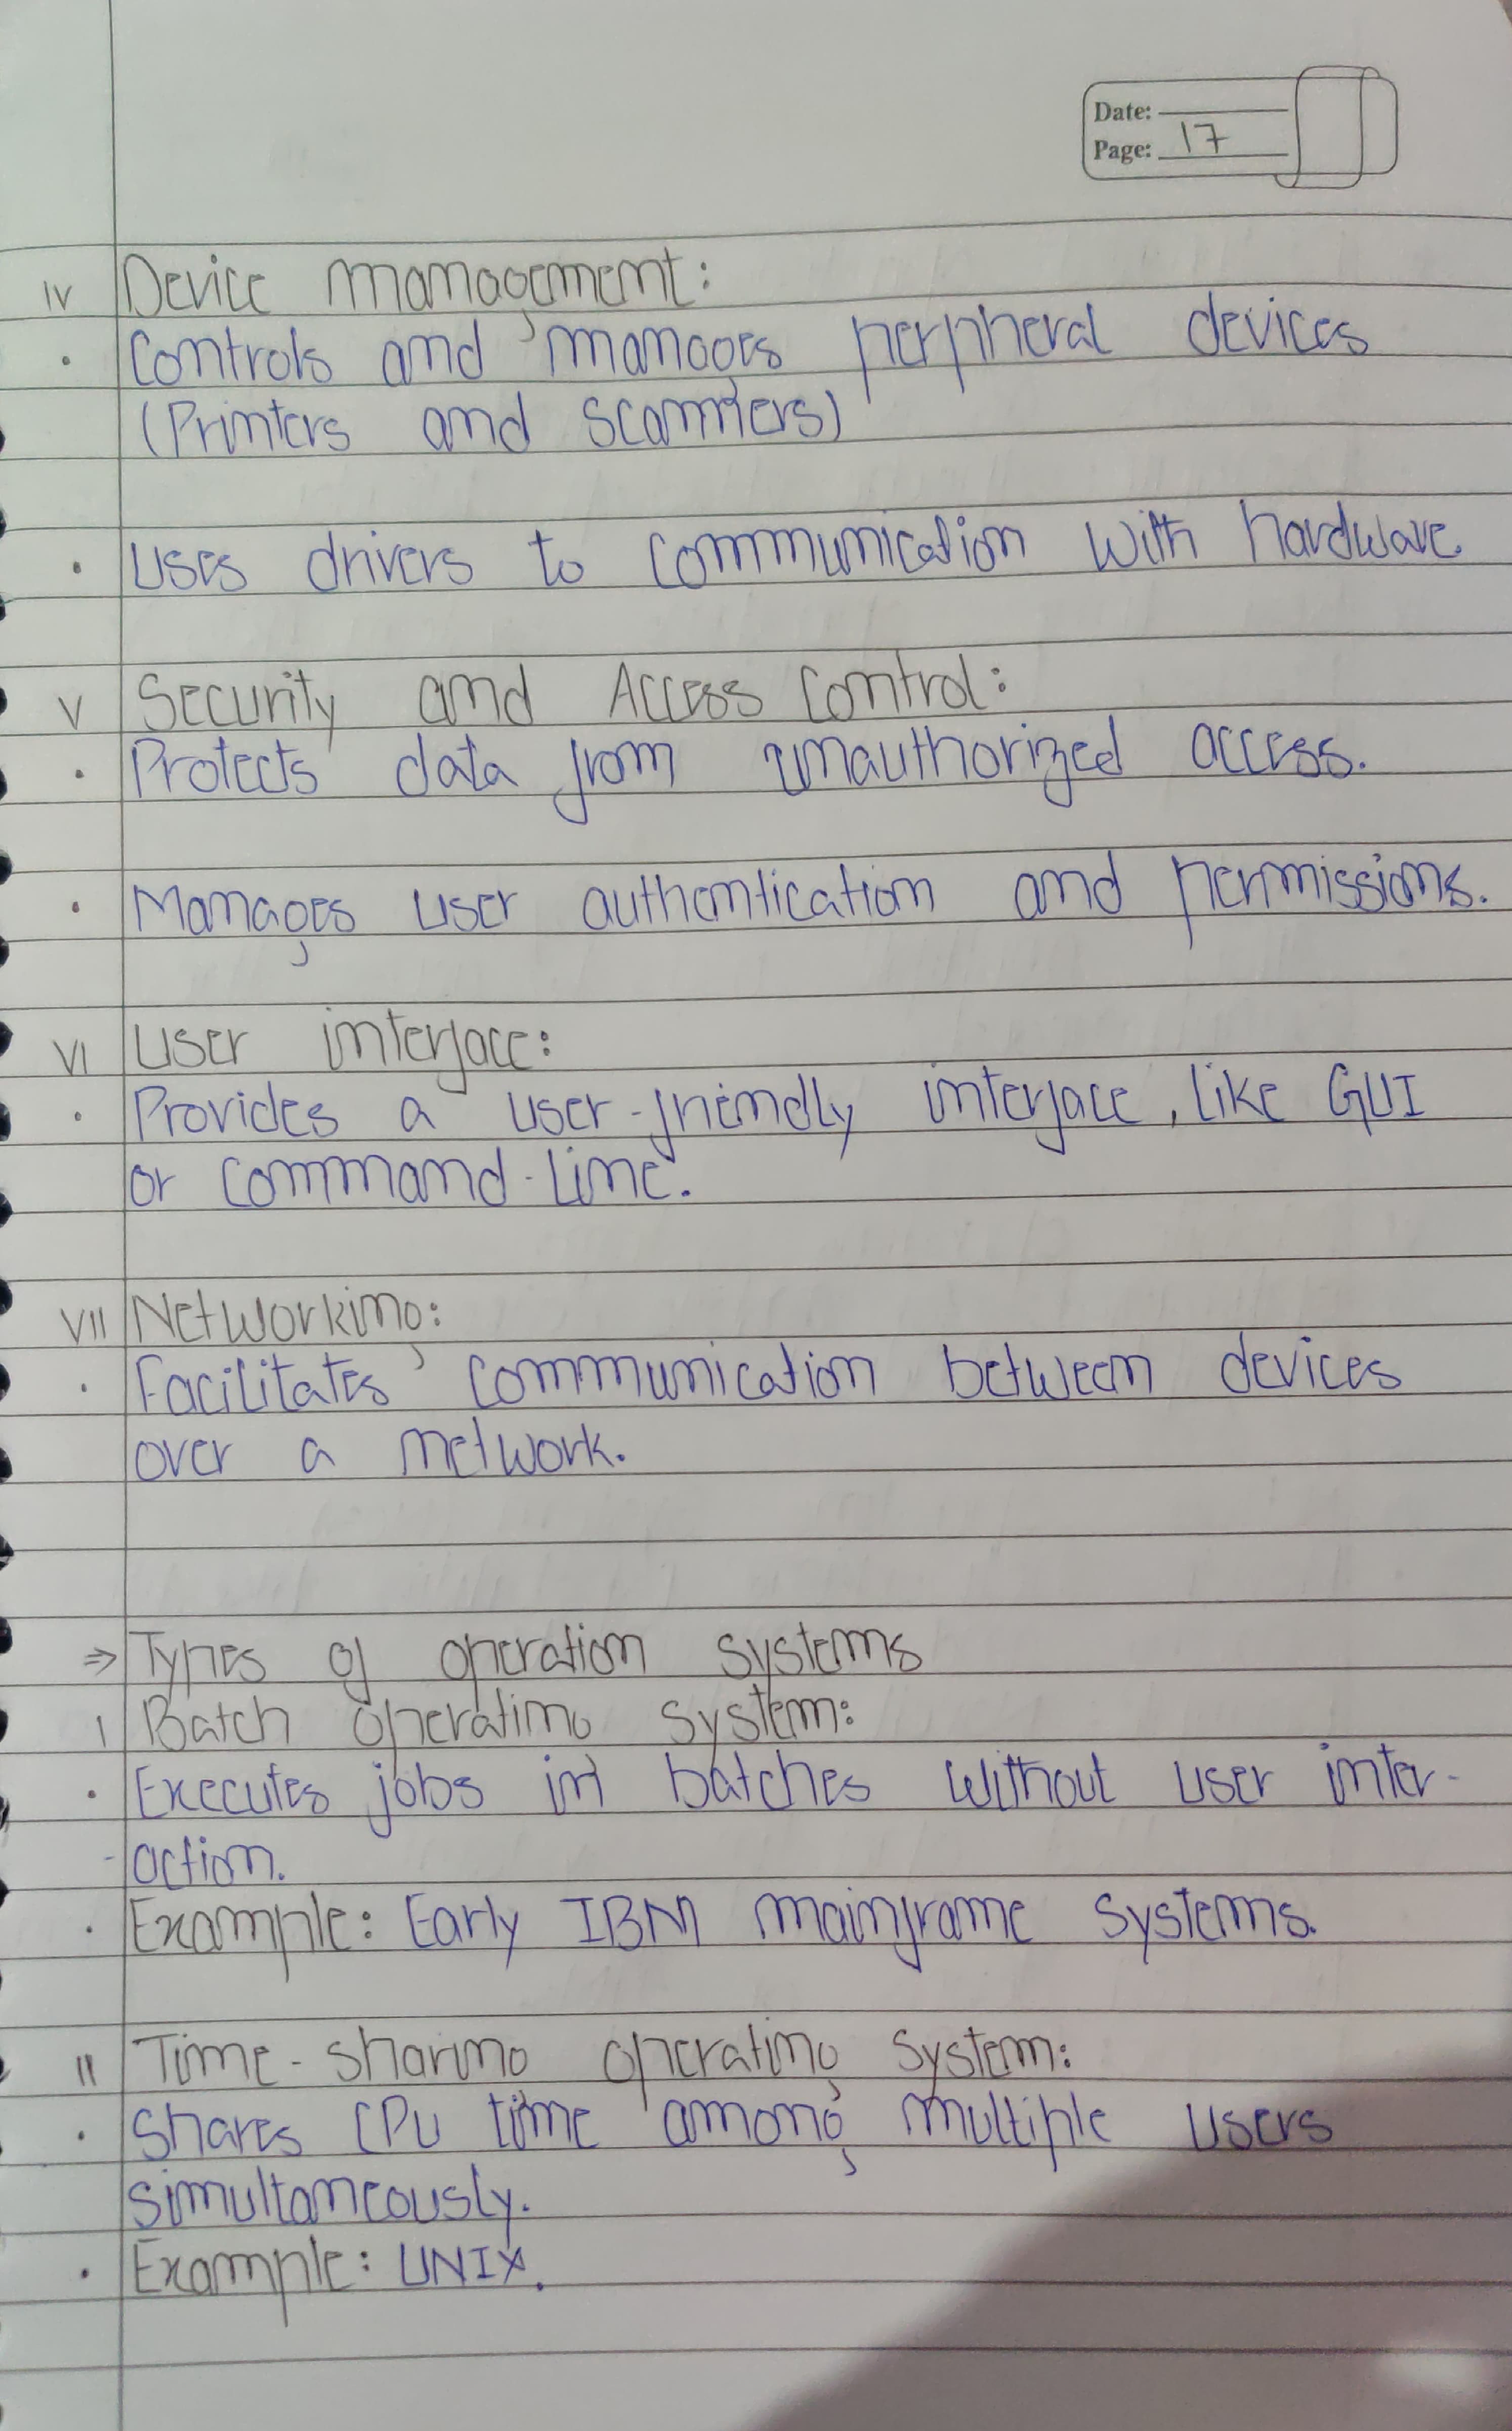 Date:
Page: 17
iv Device management:
• Controls and manages perpheral devices
(Printers and scanners)
• Uses drivers to communication with hardware.
v Security and Access Control:
• Protects data from unauthorized access.
• Manages user authentication and permissions.
vi User interface:
• Provides a user-friendly interface, like GUI
or command-line.
vii Networking:
• Facilitates communication between devices
over a network.
⇒ Types of operation systems
i Batch operating system:
• Executes jobs in batches without user inter-
-action.
• Example: Early IBM mainframe systems.
ii Time-sharing operating system:
• Shares CPU time among multiple users
simultaneously.
• Example: UNIX.